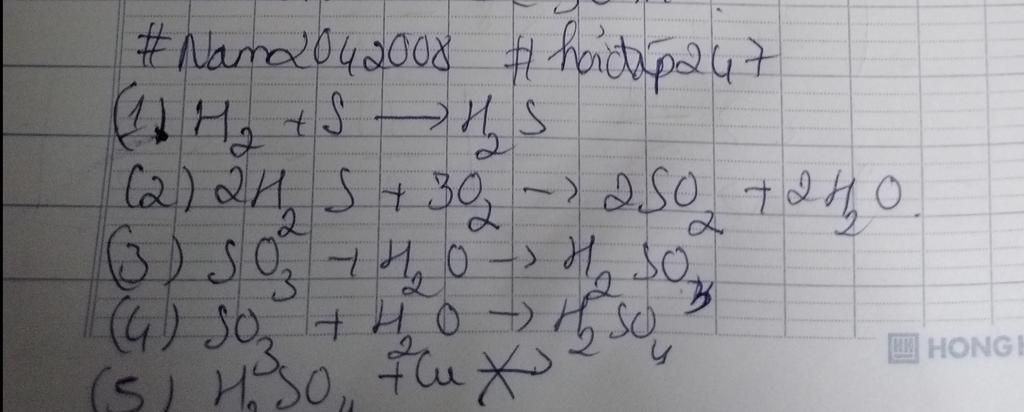 #Nam2042008 #hoidap247
(1) H₂ + S → H₂S
(2) 2H₂S + 3O₂ → 2SO₂ + 2H₂O.
(3) SO₃ + H₂O → H₂SO₃
(4) SO₃ + H₂O → H₂SO₄
HONG H
(5) H₂SO₄ + Cu